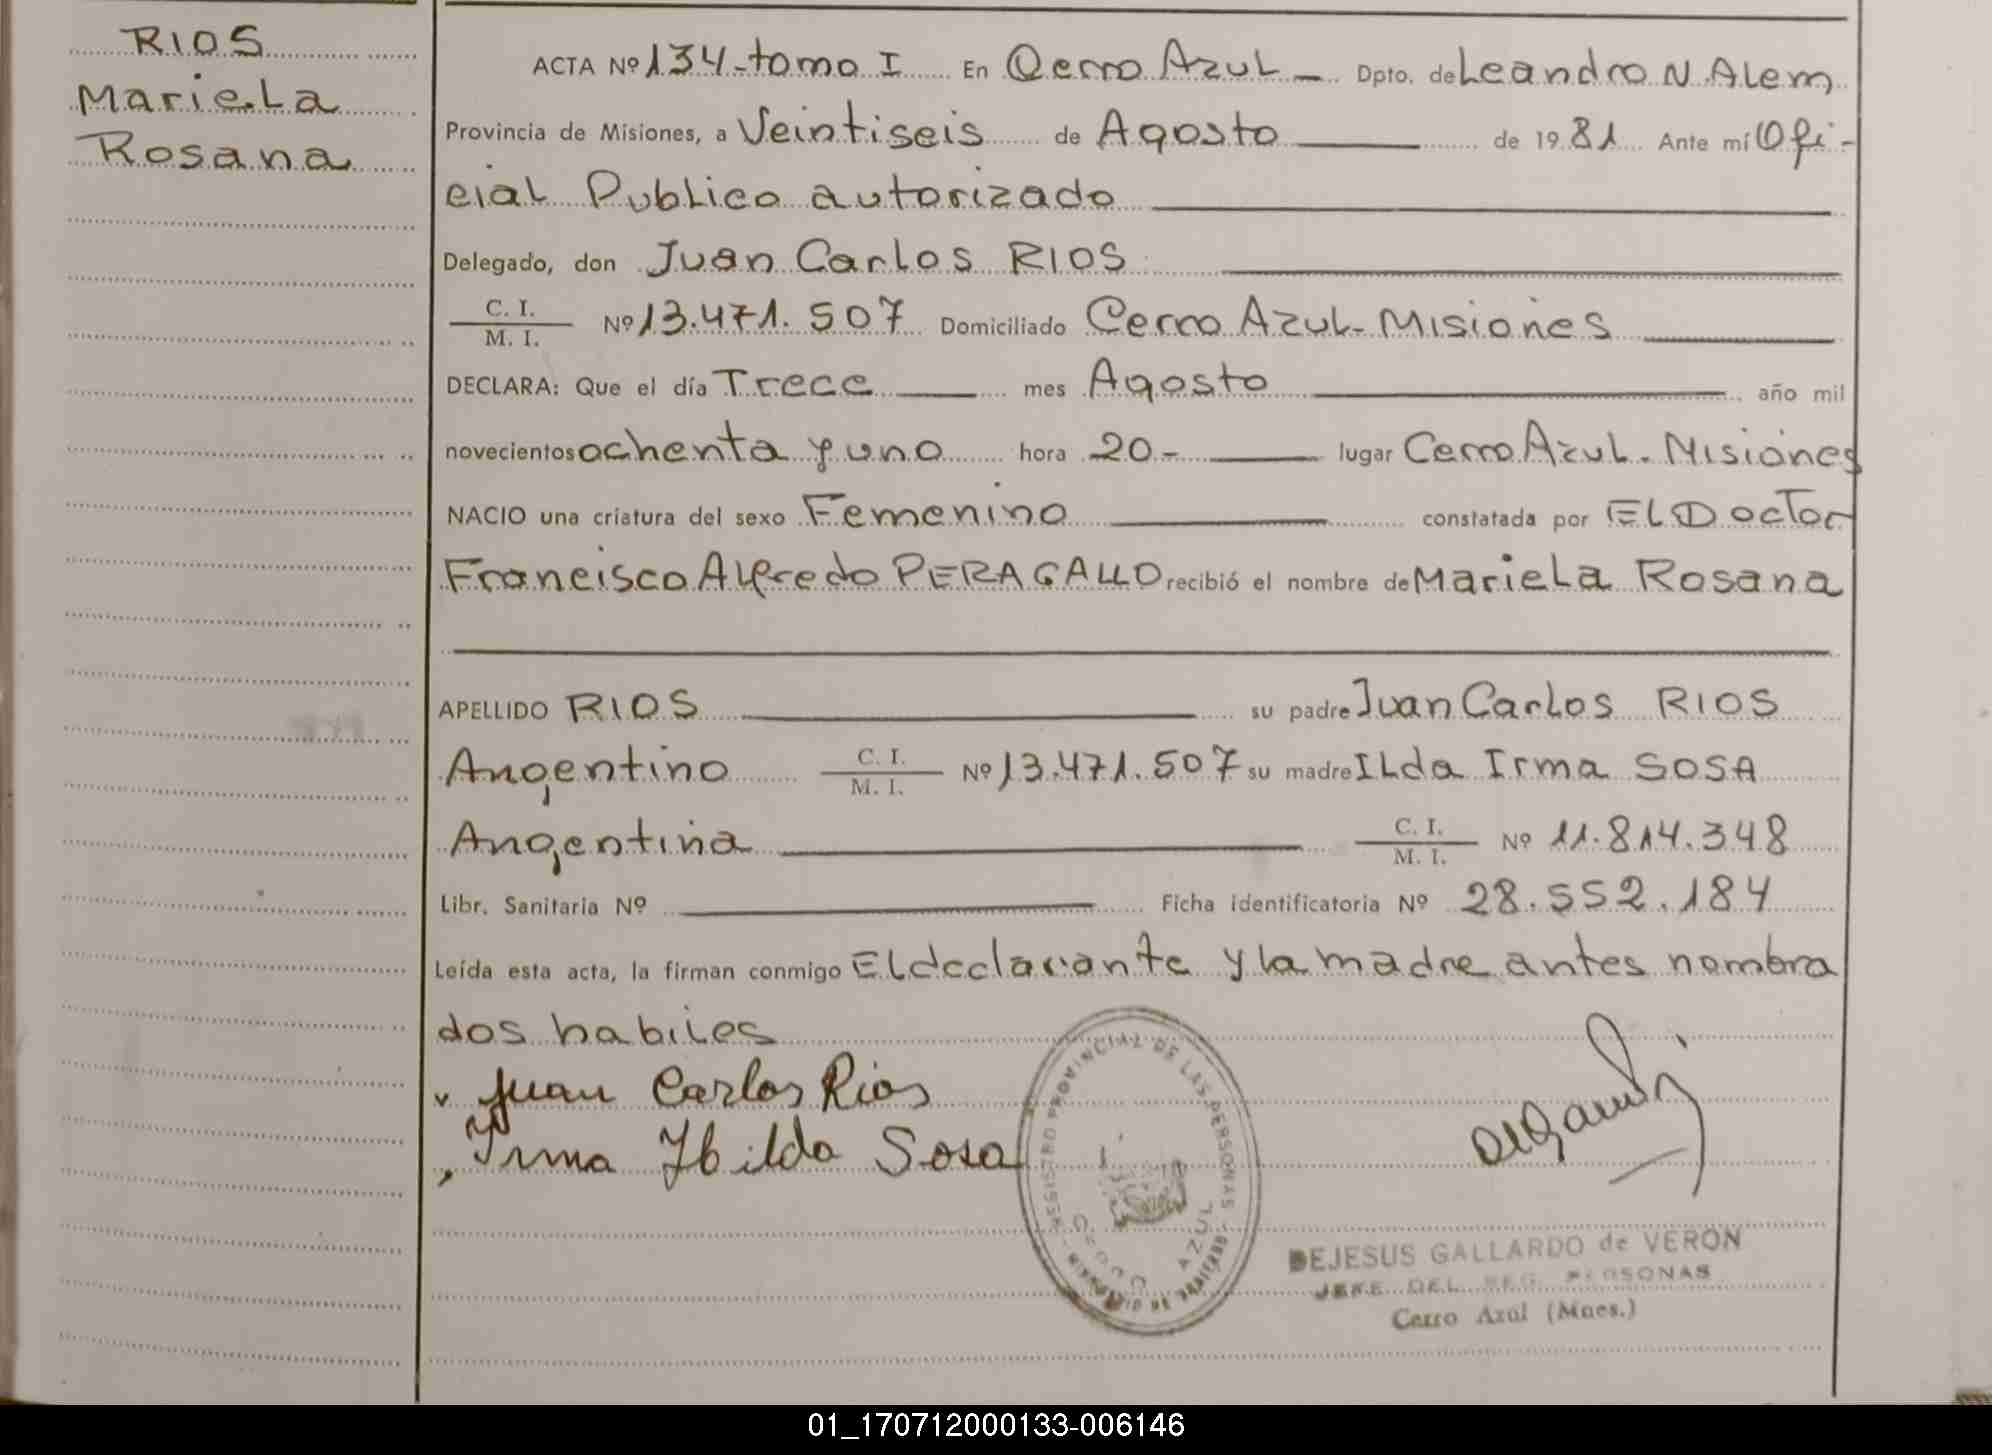 RIOS
Mariela
Rosana
ACTA Nº 134-tomo I En Cerro Azul - Dpto. de Leandro N. Alem
Provincia de Misiones, a Veintiseis de Agosto de 1981 Ante mí Ofi-
cial Publico autorizado
Delegado, don Juan Carlos RIOS
C. I.
M. I. Nº 13.471.507 Domiciliado Cerro Azul-Misiones
DECLARA: Que el día Trece mes Agosto año mil
novecientos ochenta y uno hora 20- lugar Cerro Azul-Misiones
NACIO una criatura del sexo Femenino constatada por El Doctor
Francisco Alfredo PERAGALLO recibió el nombre de Mariela Rosana
APELLIDO RIOS su padre Juan Carlos RIOS
Argentino C. I.
M. I. Nº 13.471.507 su madre Ilda Irma SOSA
Argentina C. I.
M. I. Nº 11.814.348
Libr. Sanitaria Nº Ficha Identificatoria Nº 28.552.184
Leída esta acta, la firman conmigo El declarante y la madre antes nombra
dos habiles
Juan Carlos Rios
Irma Hilda Sosa
REGISTRO PROVINCIAL DE LAS PERSONAS
CERRO AZUL
DEJESUS GALLARDO de VERON
JEFE DEL REG. PERSONAS
Cerro Azul (Mnes.)
01_170712000133-006146